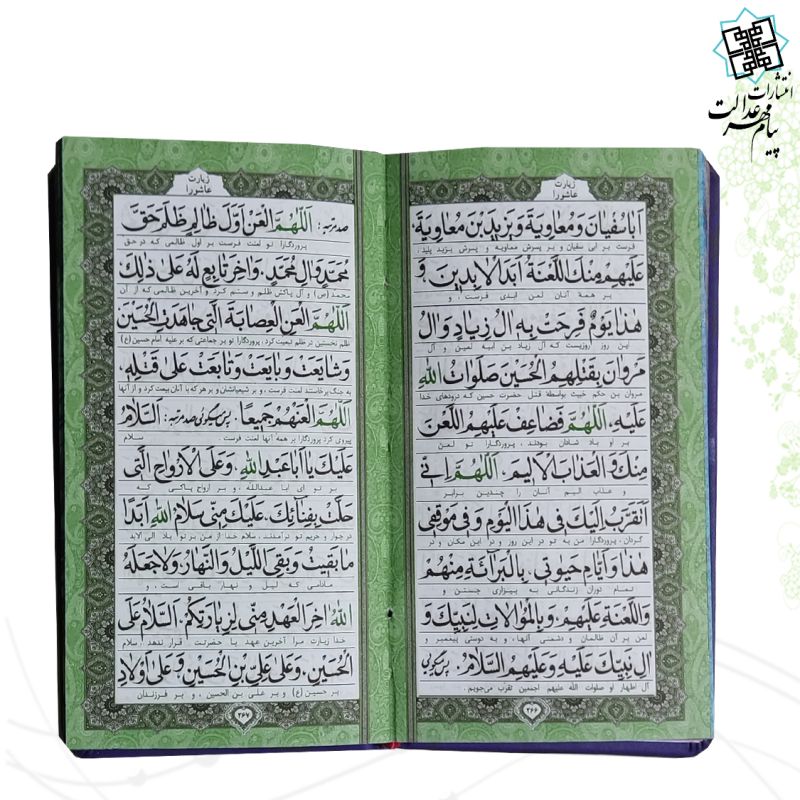 انتشارات
پیام مهر عدالت
زیارت
عاشورا
اَبا سُفْیانَ وَ مُعاوِیَةَ وَ یَزیدَ بْنَ مُعاوِیَةَ،
فرست بر ابی سفیان و بر پسرش معاویه و پسرش یزید پلید،
عَلَیْهِمْ مِنْكَ اللَّعْنَةُ اَبَدَ الْابِدینَ، وَ
بر همهٔ آنان لعن ابدی فرست، و
هٰذا یَوْمٌ فَرِحَتْ بِهِ الُ زِیادٍ وَ الُ
این روز روزیست که آل زیاد بن ابیه لعین و آل
مَرْوانَ بِقَتْلِهِمُ الْحُسَیْنَ صَلَواتُ اللهِ
مروان بن حکم خبیث بواسطهٔ قتل حضرت حسین که درودهای خدا
عَلَیْهِ، اَللّٰهُمَّ فَضاعِفْ عَلَیْهِمُ اللَّعْنَ
بر او باد شادان بودند، پروردگارا تو لعن
مِنْكَ وَ الْعَذابَ الْاَلیمَ. اَللّٰهُمَّ اِنّی
و عذاب الیم آنان را چندین برابر
اَتَقَرَّبُ اِلَیْكَ فی هٰذَا الْیَوْمِ وَ فی مَوْقِفی
گردان، پروردگارا من به تو در این روز و در این مکان و در
هٰذا وَ اَیّامِ حَیوتی، بِالْبَرآئَةِ مِنْهُمْ
تمام دوران زندگانی به بیزاری جستن و
وَ اللَّعْنَةِ عَلَیْهِمْ، وَ بِالْمُوالاتِ لِنَبِیِّكَ وَ
لعن بر آن ظالمان و دشمنی آنها، و به دوستی پیغمبر و
الِ نَبِیِّكَ عَلَیْهِ وَ عَلَیْهِمُ السَّلامُ. پس میگوئی
آل اطهار او صلوات الله علیهم اجمعین تقرب می‌جویم.
۲۶۶
زیارت
عاشورا
صد مرتبه: اَللّٰهُمَّ الْعَنْ اَوَّلَ ظالِمٍ ظَلَمَ حَقَّ
پروردگارا تو لعنت فرست بر اول ظالمی که در حق
مُحَمَّدٍ وَ الِ مُحَمَّدٍ، وَ اخِرَ تابِعٍ لَهُ عَلیٰ ذٰلِكَ
محمد (ص) و آل پاکش ظلم و ستم کرد و آخرین ظالمی که از آن
اَللّٰهُمَّ الْعَنِ الْعِصابَةَ الَّتی جاهَدَتِ الْحُسَیْنَ
ظلم نخستین در ظلم تبعیت کرد، پروردگارا تو بر جماعتی که بر علیه امام حسین (ع)
وَ شایَعَتْ وَ بایَعَتْ وَ تابَعَتْ عَلیٰ قَتْلِهِ،
به جنگ برخاستند لعنت فرست، و بر شیعیانشان و بر هر که با آنان بیعت کرد و از آنها
اَللّٰهُمَّ الْعَنْهُمْ جَمیعًا. پس میگوئی صد مرتبه: اَلسَّلامُ
پیروی کرد پروردگارا بر همهٔ آنها لعنت فرست. سلام
عَلَیْكَ یا اَبا عَبْدِ اللهِ، وَ عَلَی الْاَرْواحِ الَّتی
بر تو ای ابا عبدالله، و بر ارواح پاکی که
حَلَّتْ بِفِنائِكَ، عَلَیْكَ مِنّی سَلامُ اللهِ اَبَدًا
در جوار و حریم تو درآمدند، سلام خدا از من بر تو باد الی الابد
ما بَقیتُ وَ بَقِیَ اللَّیْلُ وَ النَّهارُ وَ لا جَعَلَهُ
مادامی که لیل و نهار باقی است، و
اللهُ اخِرَ الْعَهْدِ مِنّی لِزِیارَتِکُمْ. اَلسَّلامُ عَلَی
خدا زیارت مرا آخرین عهد با حضرتت قرار ندهد، سلام
الْحُسَیْنِ، وَ عَلیٰ عَلِیِّ بْنِ الْحُسَیْنِ وَ عَلیٰ اَوْلادِ
بر حسین (ع) و بر علی بن الحسین، و بر فرزندان
۲۶۷